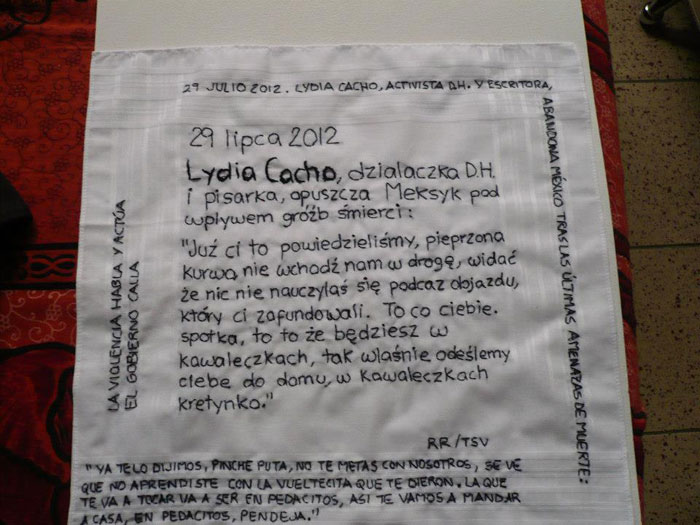 29 JULIO 2012. LYDIA CACHO, ACTIVISTA D.H. Y ESCRITORA,
ABANDONA MÉXICO TRAS LAS ÚLTIMAS AMENAZAS DE MUERTE:
29 lipca 2012
Lydia Cacho, dzialaczka D.H.
i pisarka, opuszcza Meksyk pod
wplywem gróźb śmierci:
"Już ci to powiedzieliśmy, pieprzona
kurwo, nie wchodź nam w drogę, widać
że nic nie nauczylaś się podczaz objazdu,
który ci zafundowali. To co ciebie.
spotka, to to że będziesz w
kawaleczkach, tak wlaśnie odeślemy
ciebe do domu, w kawaleczkach
kretynko."
RR/TSV
LA VIOLENCIA HABLA Y ACTÚA
EL GOBIERNO CALLA
"YA TELO DIJIMOS, PINCHE PUTA, NO TE METAS CON NOSOTROS, SE VE
QUE NO APRENDISTE CON LA VUELTECITA QUE TE DIERON. LA QUE
TE VA A TOCAR VA A SER EN PEDACITOS, ASI TE VAMOS A MANDAR
A CASA, EN PEDACITOS, PENDEJA."